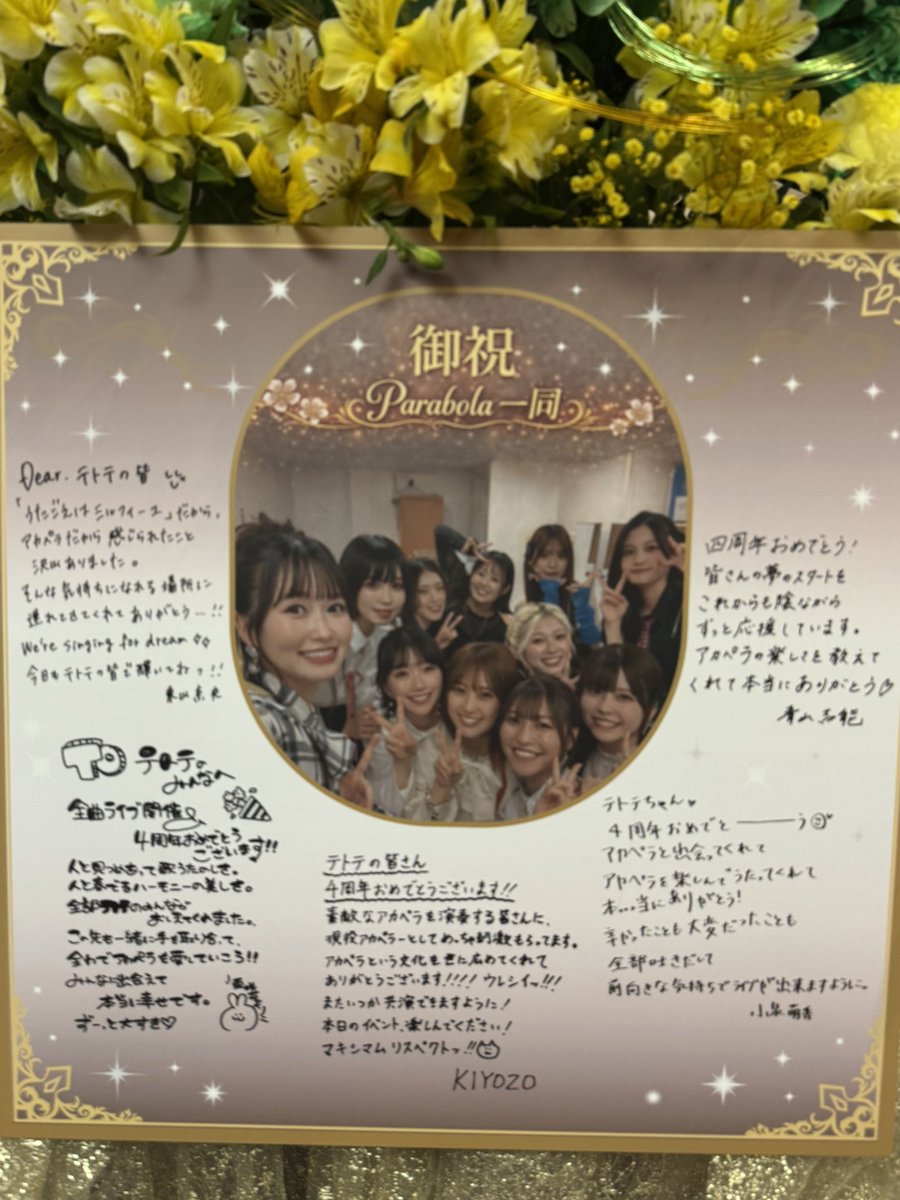 御祝
Parabola 一同
Dear. テトテの皆
「うたごえはミルフィーユ」だから、
アカペラだから感じられたこと
沢山ありました。
そんな気持ちになれる場所に
連れてきてくれてありがとう…!!
We're singing for dream
今日もテトテの皆で輝いちゃっ!!
四周年おめでとう!
皆さんの夢のスタートを
これからも陰ながら
ずっと応援しています。
アカペラの楽しさを教えて
くれて本当にありがとう♡
テトテの
みんなへ
全曲ライブ開催
4周年おめでとう
ございます!!
人と見つめあって歌うたのしさ。
人と奏でるハーモニーの美しさ。
全部のみんなが
おしえてくれました。
この先も一緒に手を取り合って、
全力でアカペラを愛していこう!!
みんなに出会えて
本当に幸せです。
ずーっと大すき♡
テトテの皆さん
4周年おめでとうございます!!
素敵なアカペラを演奏する皆さんに、
現役アカペラーとしてめっちゃ刺激もらってます。
アカペラという文化を世に広めてくれて
ありがとうございます!!!! ウレシイッ!!!
またいつか共演できますように!
本日のイベント、楽しんでください!
マキシマムリスペクトッ!!
KIYOZO
テトテちゃん♥
4周年おめでと———う
アカペラと出会ってくれて
アカペラを楽しんでうたってくれて
本...当にありがとう!
辛かったことも大変だったことも
全部吐きだして
前向きな気持ちでライブが出来ますように〜
小泉萌香